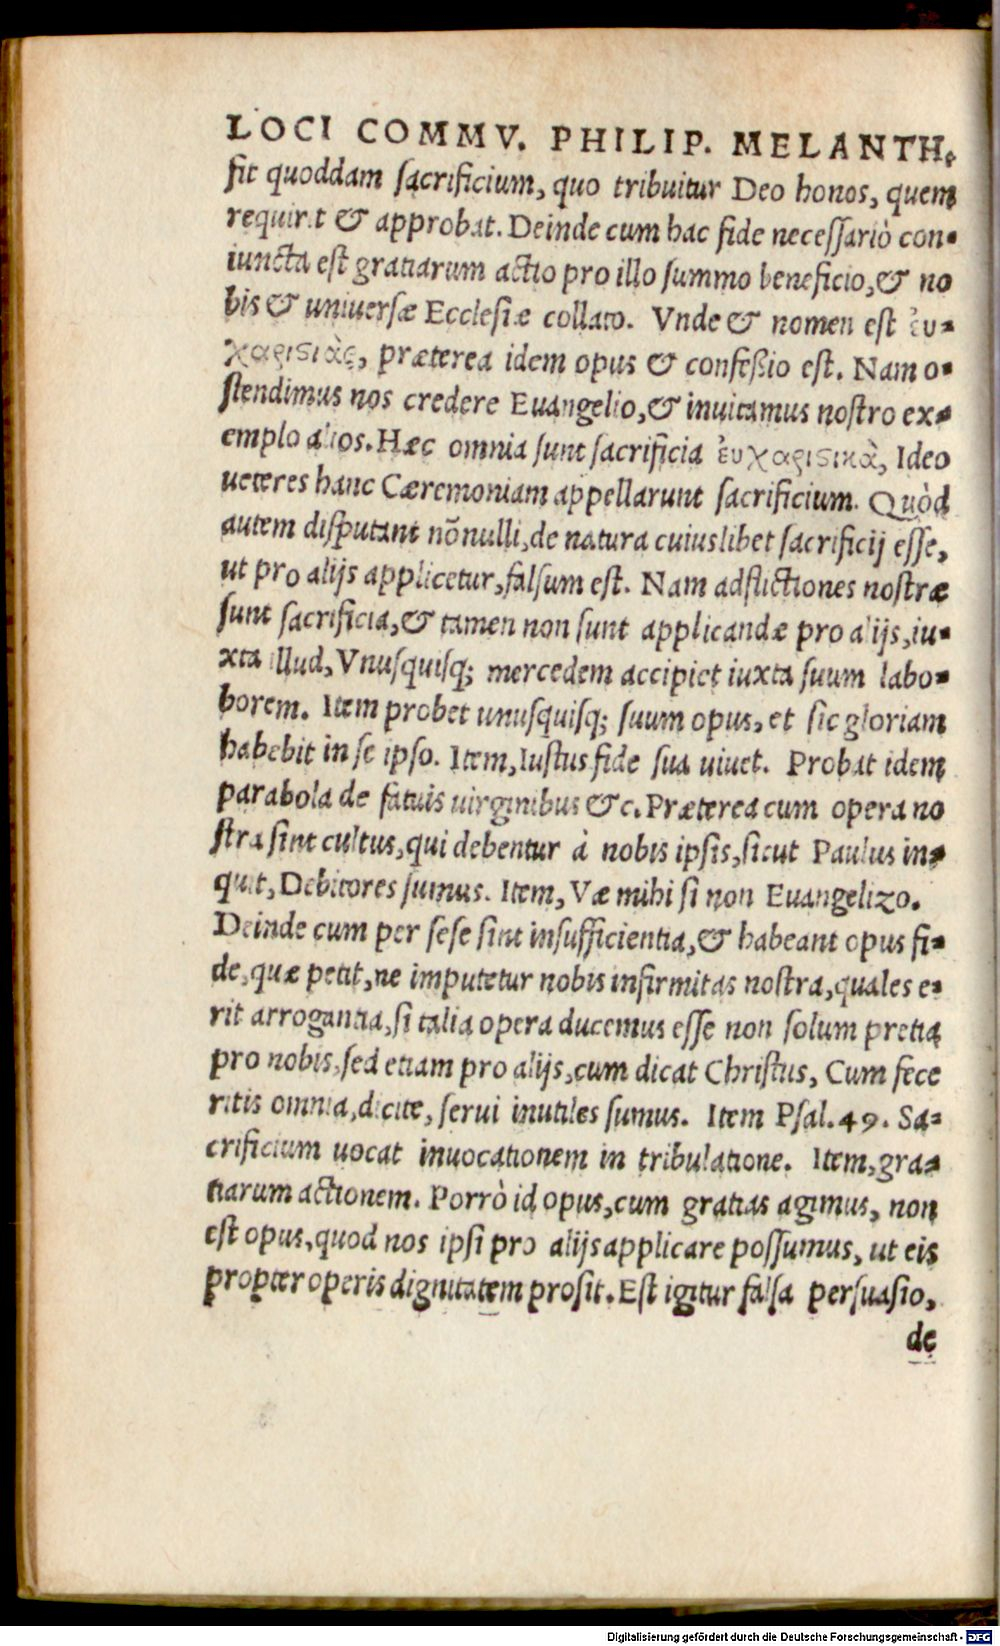 LOCI COMMV. PHILIP. MELANTH.
fit quoddam sacrificium, quo tribuitur Deo honos, quem
requirit & approbat. Deinde cum hac fide necessariò con-
iuncta est gratiarum actio pro illo summo beneficio, & no
bis & universæ Ecclesiæ collato. Vnde & nomen est ἐυ-
χαριστιὰς, præterea idem opus & confeßio est. Nam o-
stendimus nos credere Euangelio, & inuitamus nostro ex-
emplo alios. Hæc omnia sunt sacrificia ἐυχαριστικὰ, Ideo
ueteres hanc Cæremoniam appellarunt sacrificium. Quòd
autem disputant nõnulli, de natura cuiuslibet sacrificij esse,
ut pro alijs applicetur, falsum est. Nam adflictiones nostræ
sunt sacrificia, & tamen non sunt applicandæ pro alijs, iu-
xta illud, Vnusquisq; mercedem accipiet iuxta suum labo-
borem. Item probet unusquisq; suum opus, et sic gloriam
habebit in se ipso. Item, Iustus fide sua uiuet. Probat idem
parabola de fatuis uirginibus &c. Præterea cum opera no
stra sint cultus, qui debentur à nobis ipsis, sicut Paulus in-
quit, Debitores sumus. Item, Væ mihi si non Euangelizo.
Deinde cum per sese sint insufficientia, & habeant opus fi-
de, quæ petit, ne imputetur nobis infirmitas nostra, quales e-
rit arrogantia, si talia opera ducemus esse non solum pretia
pro nobis, sed etiam pro alijs, cum dicat Christus, Cum fece
ritis omnia, dicite, serui inutiles sumus. Item Psal. 49. Sa-
crificium uocat inuocationem in tribulatione. Item, gra-
tiarum actionem. Porrò id opus, cum gratias agimus, non
est opus, quod nos ipsi pro alijs applicare possumus, ut eis
propter operis dignitatem prosit. Est igitur falsa persuasio,
de
Digitalisierung gefördert durch die Deutsche Forschungsgemeinschaft - DFG